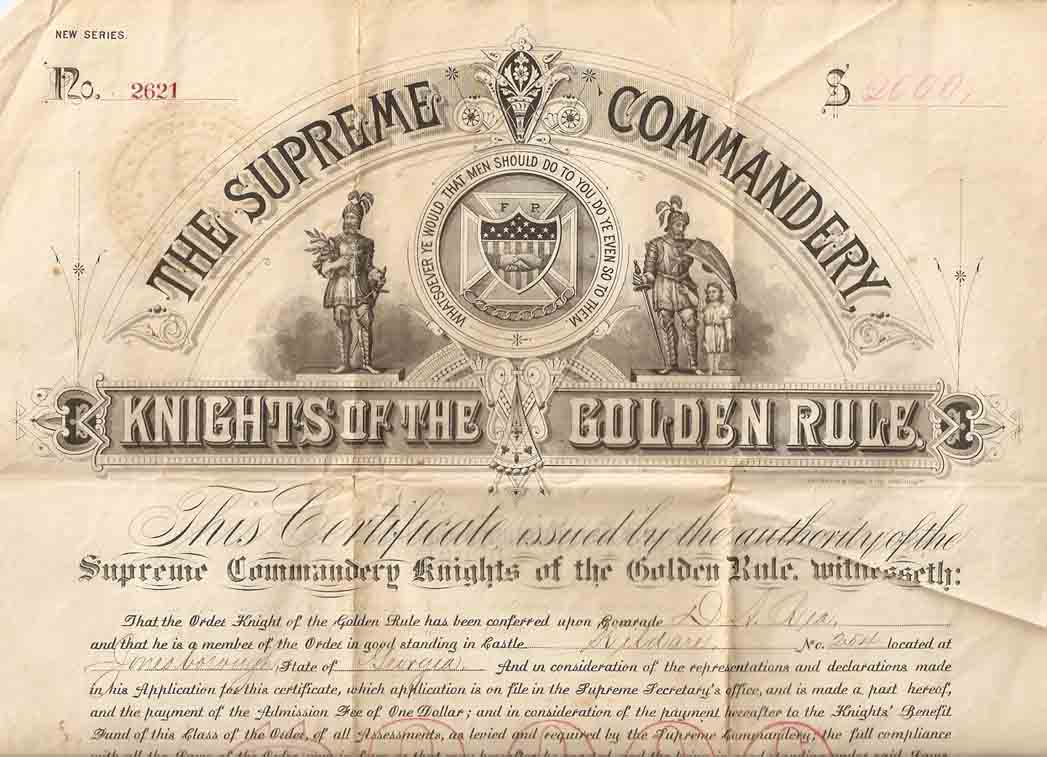 NEW SERIES.
No. 2621
$ 2000.
THE SUPREME COMMANDERY
WHATSOEVER YE WOULD THAT MEN SHOULD DO TO YOU DO YE EVEN SO TO THEM
F. P.
KNIGHTS OF THE GOLDEN RULE.
This Certificate, issued by the authority of the
Supreme Commandery Knights of the Golden Rule. witnesseth:
That the Order Knight of the Golden Rule has been conferred upon Comrade D. N.
and that he is a member of the Order in good standing in Castle No. 254 located at
Jonesborough, State of Georgia. And in consideration of the representations and declarations made
in his Application for this certificate, which application is on file in the Supreme Secretary's office, and is made a part hereof,
and the payment of the Admission Fee of One Dollar; and in consideration of the payment hereafter to the Knights' Benefit
Fund of this Class of the Order, of all Assessments, as levied and required by the Supreme Commandery; the full compliance